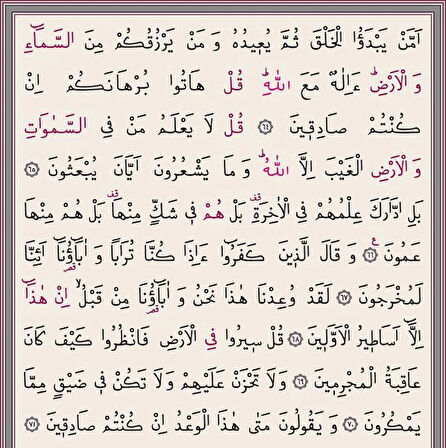 اَمَّنْ يَبْدَؤُا الْخَلْقَ ثُمَّ يُعِيدُهُ وَ مَنْ يَرْزُقُكُمْ مِنَ السَّمَٓاءِ
وَ الْاَرْضِۜ ءَاِلٰهٌ مَعَ اللّٰهِۜ قُلْ هَاتُوا بُرْهَانَكُمْ اِنْ
كُنْتُمْ صَادِقٖينَ ﴿٦٤﴾ قُلْ لَا يَعْلَمُ مَنْ فِى السَّمٰوَاتِ
وَ الْاَرْضِ الْغَيْبَ اِلَّا اللّٰهُۜ وَ مَا يَشْعُرُونَ اَيَّانَ يُبْعَثُونَ ﴿٦٥﴾
بَلِ ادَّارَكَ عِلْمُهُمْ فِى الْاٰخِرَةِࣞ بَلْ هُمْ فٖى شَكٍّ مِنْهَاࣞ بَلْ هُمْ مِنْهَا
عَمُونَ ﴿٦٦﴾ وَ قَالَ الَّذٖينَ كَفَرُٓوا ءَاِذَا كُنَّا تُرَابًا وَ اٰبَٓاؤُ۬نَٓا اَئِنَّا
لَمُخْرَجُونَ ﴿٦٧﴾ لَقَدْ وُعِدْنَا هٰذَا نَحْنُ وَ اٰبَٓاؤُ۬نَا مِنْ قَبْلُۙ اِنْ هٰذَٓا
اِلَّٓا اَسَاطٖيرُ الْاَوَّلٖينَ ﴿٦٨﴾ قُلْ سٖيرُوا فِى الْاَرْضِ فَانْظُرُوا كَيْفَ كَانَ
عَاقِبَةُ الْمُجْرِمٖينَ ﴿٦٩﴾ وَلَا تَحْزَنْ عَلَيْهِمْ وَلَا تَكُنْ فٖى ضَيْقٍ مِمَّا
يَمْكُرُونَ ﴿٧٠﴾ وَ يَقُولُونَ مَتٰى هٰذَا الْوَعْدُ اِنْ كُنْتُمْ صَادِقٖينَ ﴿٧١﴾